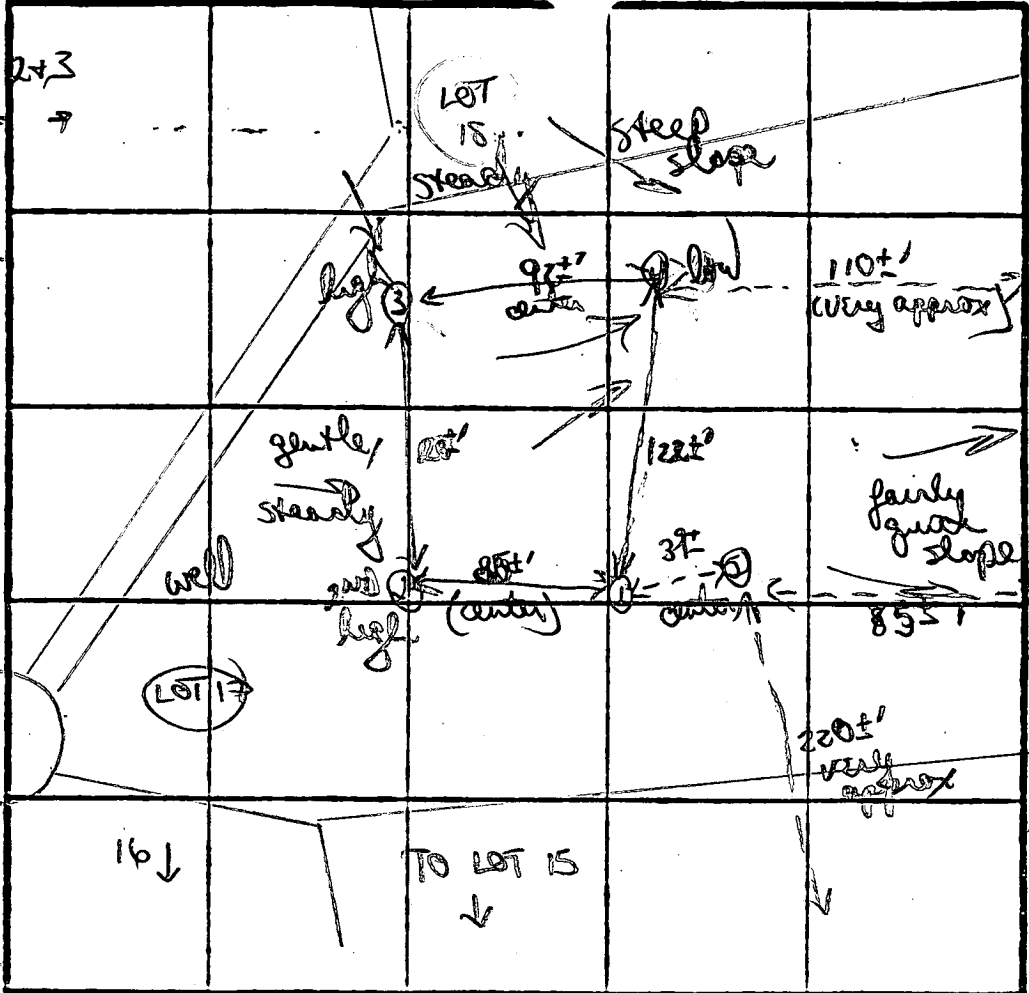 2+3
LOT
18
steady
steep
slope
high
3
92±'
center
4
low
110±'
(very approx)
gentle/
steady
122±'
fairly
slope
well
high
2
(center)
1
39±
center
5
LOT 17
220±'
very
approx
16 ↓
TO LOT 15